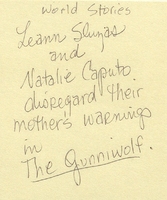 World Stories
Leann
and
Natalie Caputo
disregard their
mother's warnings
in
The Gunniwolf.